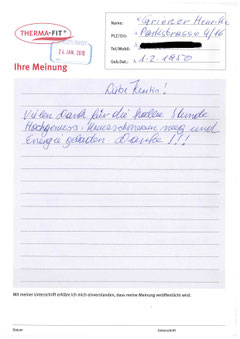 THERMA-FIT®
24. JAN. 2010
Name:
PLZ/Ort: Parkstrasse 4/16
Tel/Mobil:
Geb.Dat.: 1.2.1950
Ihre Meinung
Vielen Dank für die halbe Stunde
Hochgenuss. und
Energie geladen Danke!!!
Mit meiner Unterschrift erkläre ich mich einverstanden, dass meine Meinung veröffentlicht wird.
Datum Unterschrift